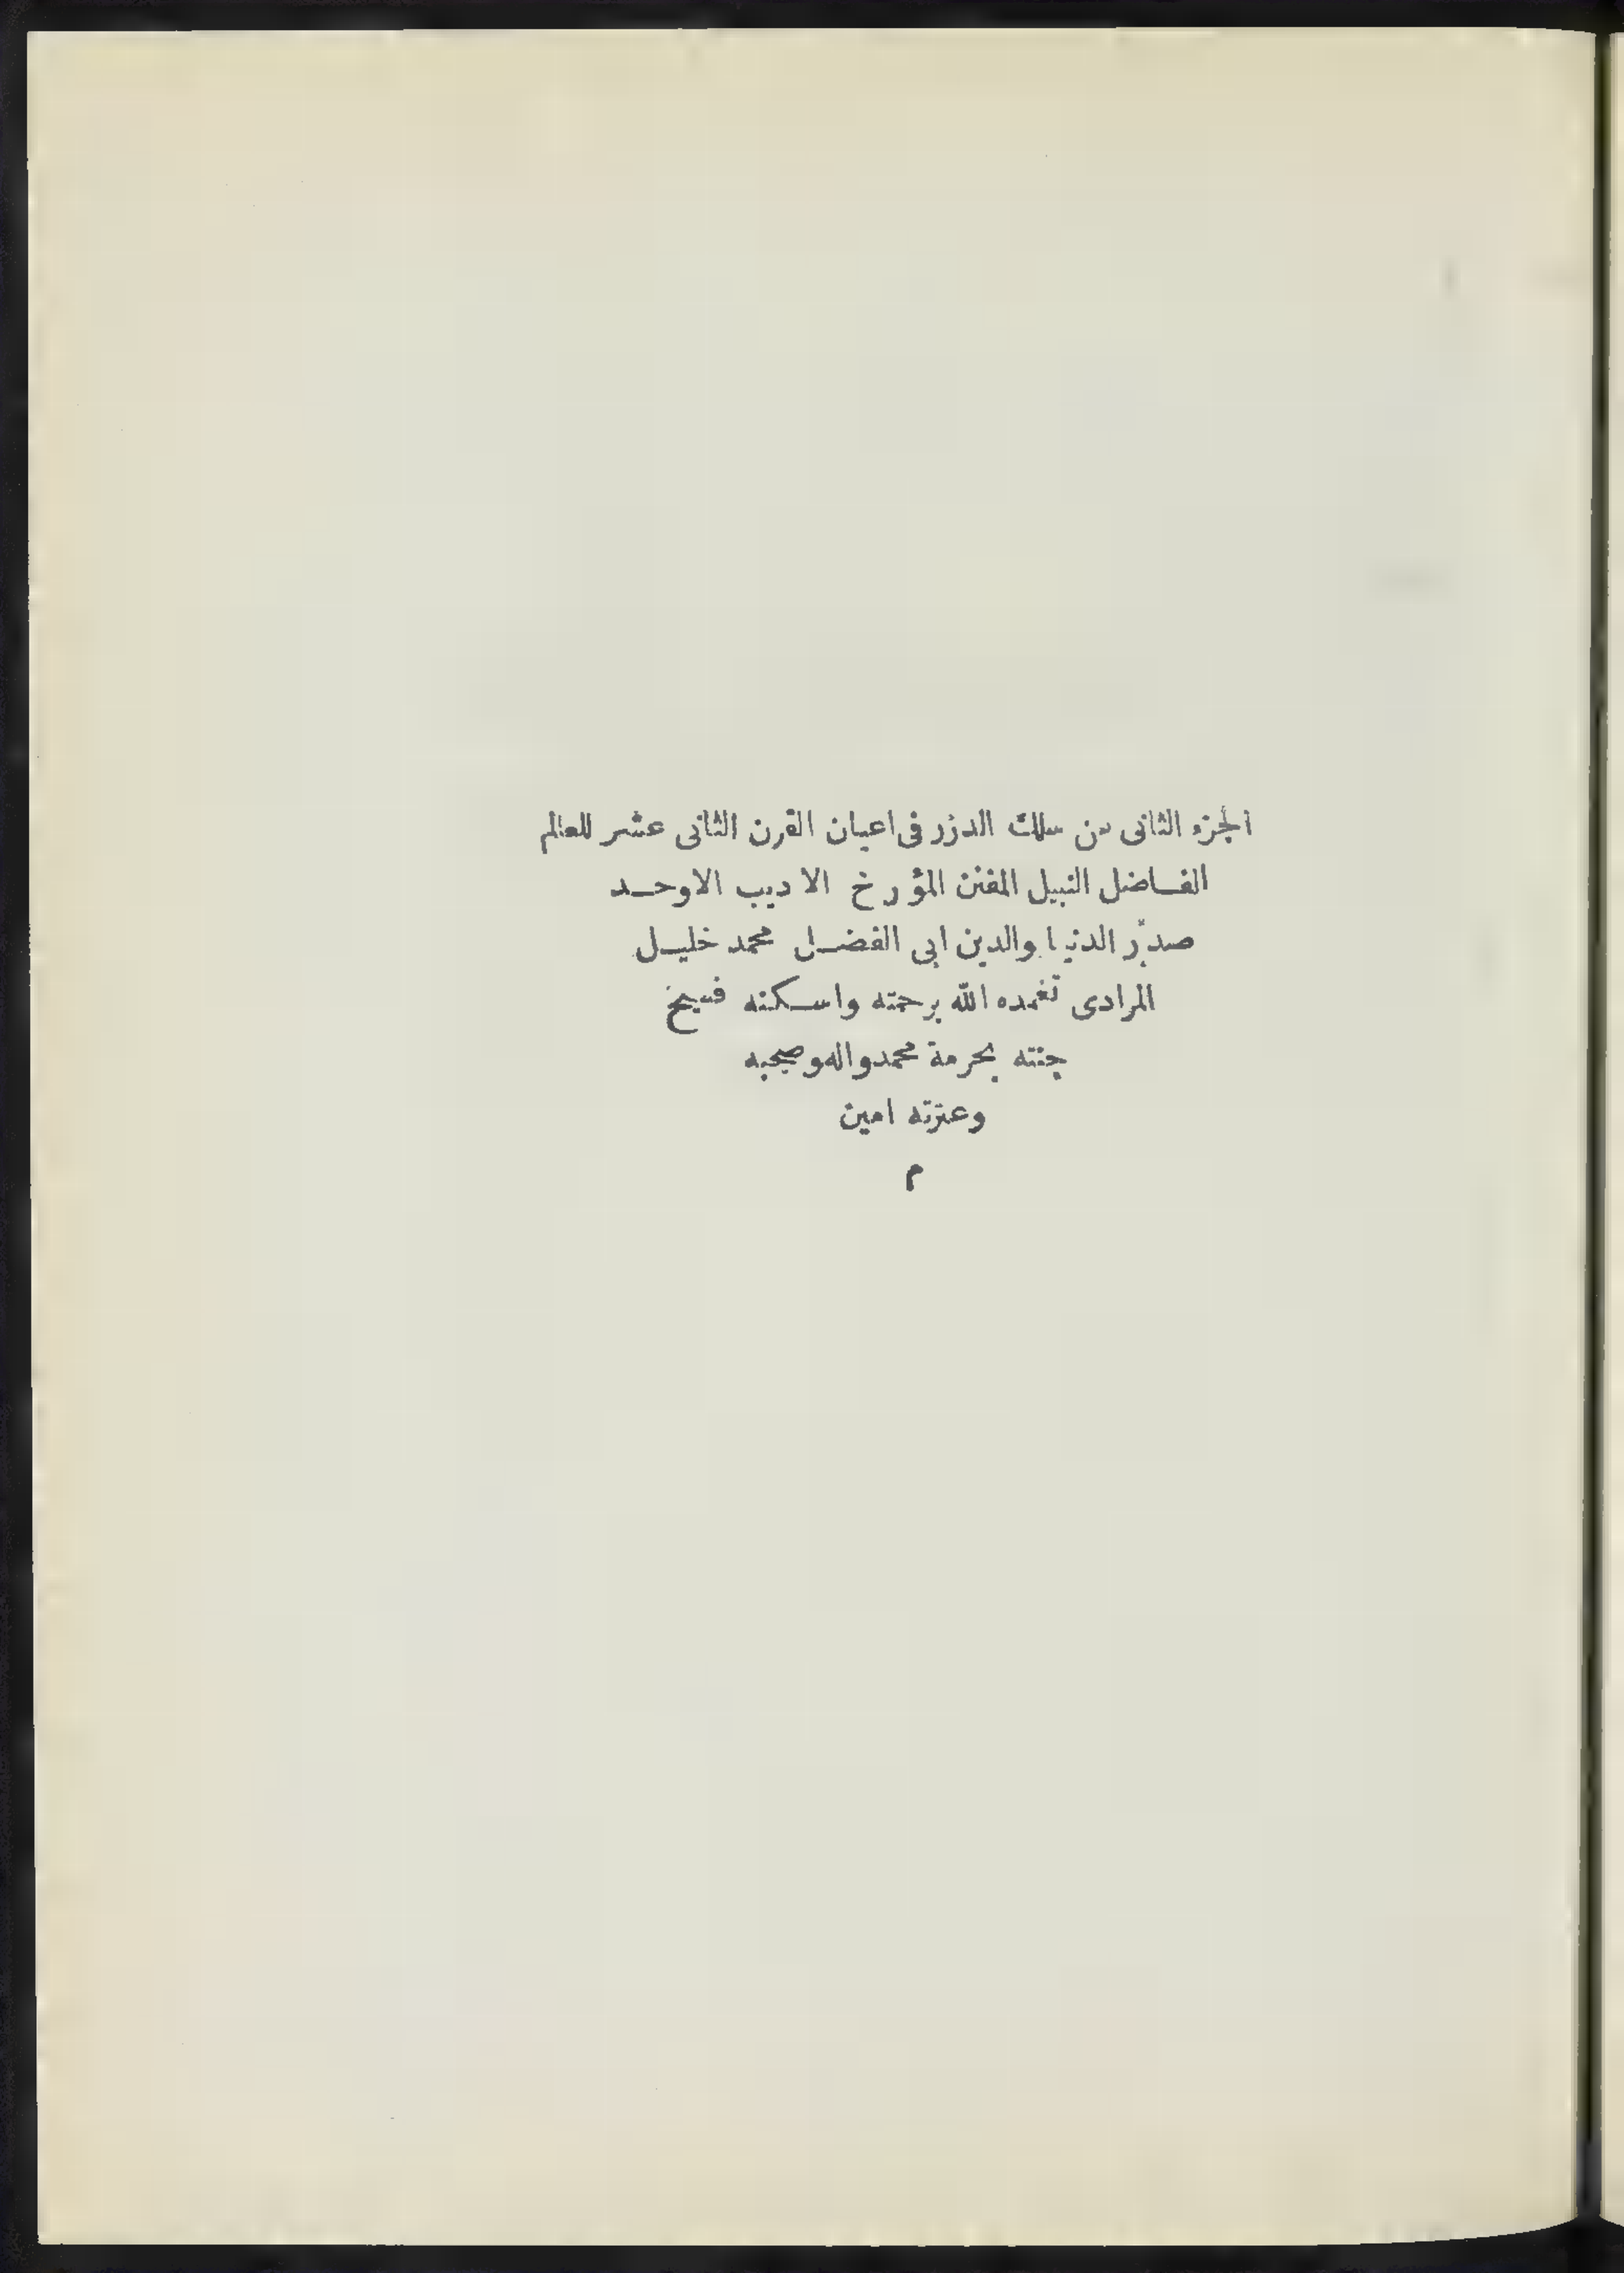 الجزء الثانى من سلك الدرر فى اعيان القرن الثانى عشر للعالم
الفاضل النبيل المفنن المؤرخ الاديب الاوحد
صدر الدنيا والدين ابى الفضل محمد خليل
المرادى تغمده الله برحمته واسكنه فسيح
جنته بحرمة محمد واله وصحبه
وعترته امين
م